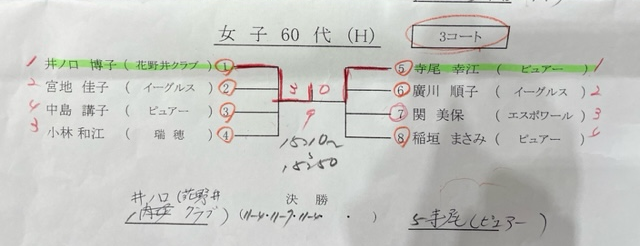 女子60代(H) 3コート
1 井ノ口 博子 (花野井クラブ) ① 3 0 ⑤ 寺尾 幸江 (ピュアー) 1
2 宮地 佳子 (イーグルス) ② ⑥ 廣川 順子 (イーグルス) 2
4 中島 講子 (ピュアー) ③ ⑦ 関 美保 (エスポワール) 3
3 小林 和江 (瑞穂) ④ ⑧ 稲垣 まさみ (ピュアー) 4
15:10~
15:50
決勝
井ノ口 (花野井クラブ) (11-4・11-9・11-6・ ・ ) 寺尾(ピュアー)